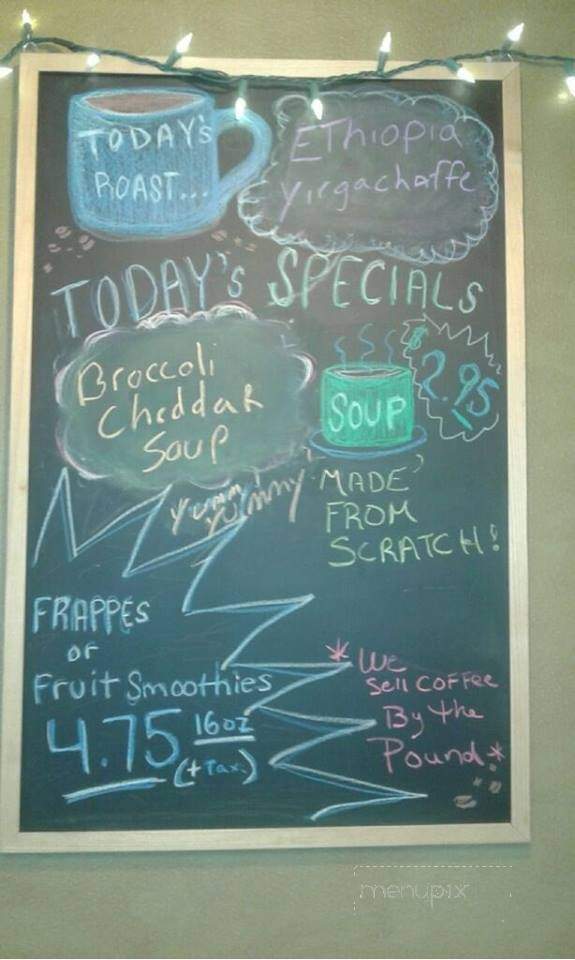 TODAY's
ROAST...
EThiopia
yirgachaffe
TODAY's SPECIALs
Broccoli
Cheddar
Soup
SOUP
$2.95
yumm
yummy
"MADE"
FROM
SCRATCH!
FRAPPES
or
Fruit Smoothies
4.75 16oz
(+ Tax.)
* We
Sell COFFee
By the
Pound *
menupix